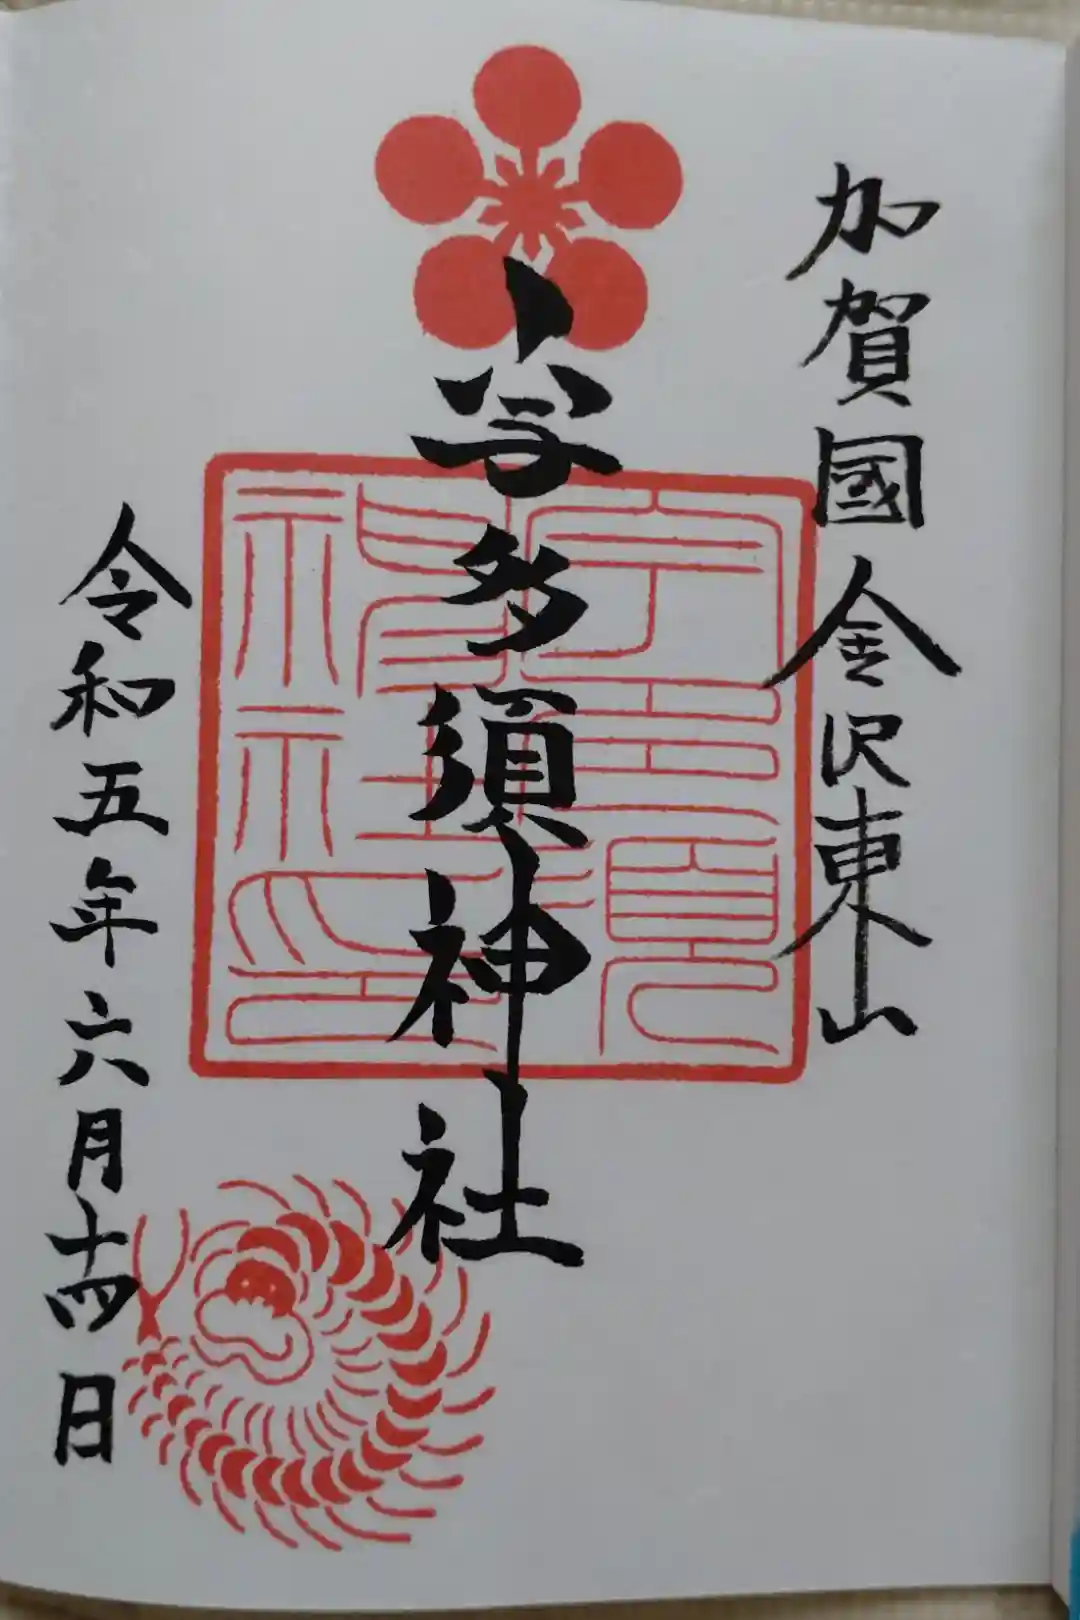 加賀國金沢東山
宇多須神社
宇多須神社印
令和五年六月十四日